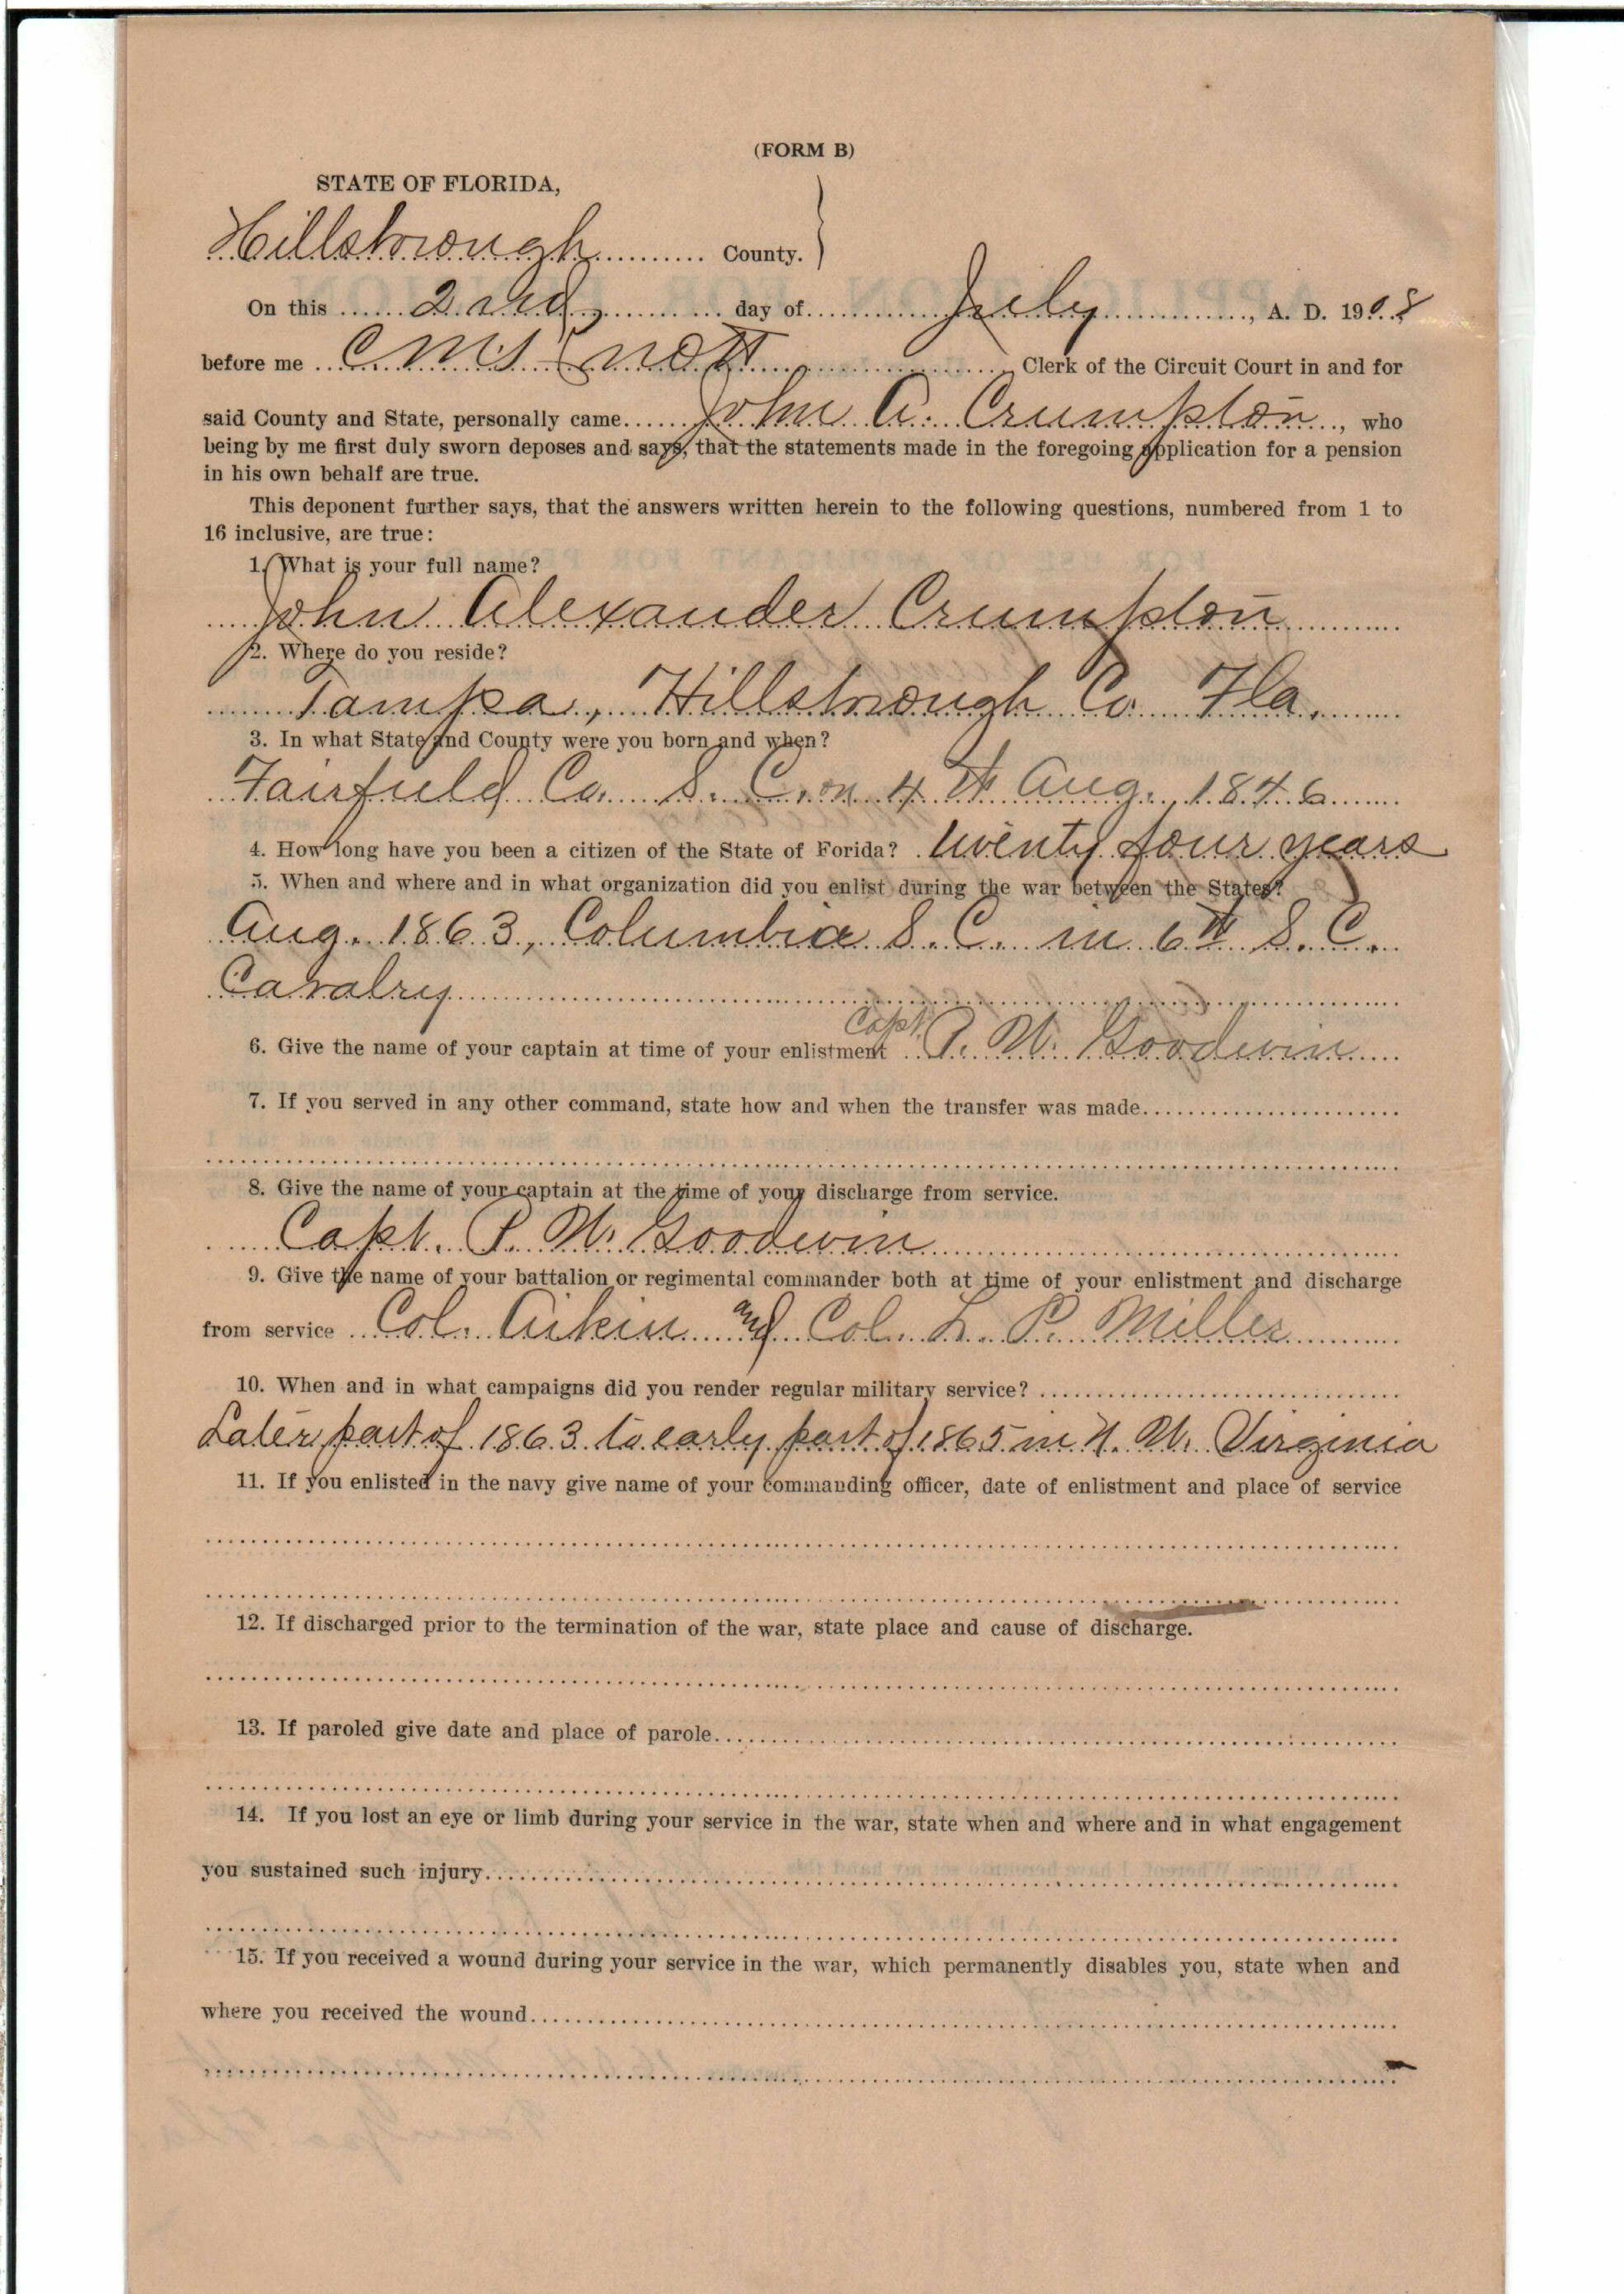 (FORM B)
STATE OF FLORIDA,
Hillsborough County.
On this 2nd day of July, A. D. 1908
before me Clerk of the Circuit Court in and for
said County and State, personally came John A. Crumpton, who
being by me first duly sworn deposes and says, that the statements made in the foregoing application for a pension
in his own behalf are true.
This deponent further says, that the answers written herein to the following questions, numbered from 1 to
16 inclusive, are true:
1. What is your full name?
John Alexander Crumpton
2. Where do you reside?
Tampa, Hillsborough Co. Fla.
3. In what State and County were you born and when?
Fairfield Co. S. C. on 4th Aug. 1846
4. How long have you been a citizen of the State of Forida? twenty four years
5. When and where and in what organization did you enlist during the war between the States?
Aug. 1863, Columbia S. C. in 6th S. C.
Cavalry
6. Give the name of your captain at time of your enlistment Capt. P. W. Goodwin
7. If you served in any other command, state how and when the transfer was made
8. Give the name of your captain at the time of your discharge from service.
Capt. P. W. Goodwin
9. Give the name of your battalion or regimental commander both at time of your enlistment and discharge
from service Col. Aikin and Col. L. P. Miller
10. When and in what campaigns did you render regular military service?
Later part of 1863 to early part of 1865 in N. W. Virginia
11. If you enlisted in the navy give name of your commanding officer, date of enlistment and place of service
12. If discharged prior to the termination of the war, state place and cause of discharge.
13. If paroled give date and place of parole
14. If you lost an eye or limb during your service in the war, state when and where and in what engagement
you sustained such injury
15. If you received a wound during your service in the war, which permanently disables you, state when and
where you received the wound